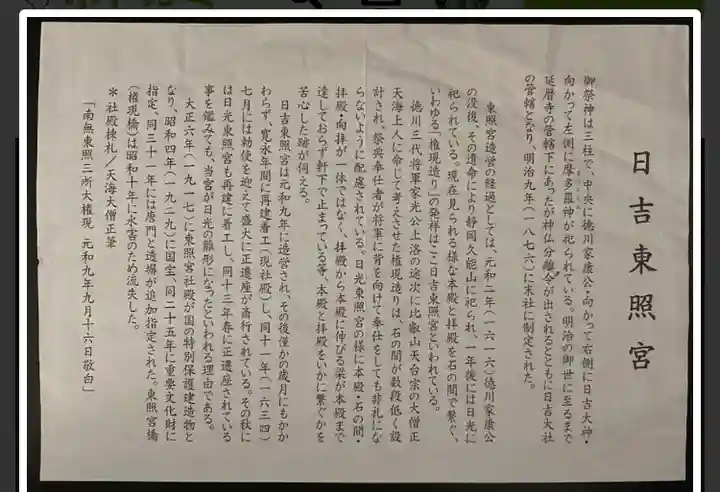 日吉東照宮
御祭神は三柱で、中央に徳川家康公・向かって右側に日吉大神・
向かって左側に摩多羅神が祀られている。明治の御世に至るまで
延暦寺の管轄下にあったが神仏分離令が出されるとともに日吉大社
の管轄となり、明治九年(一八七六)に末社に制定された。
東照宮造営の経過としては、元和二年(一六一六)徳川家康公
の没後、その遺命により静岡久能山に祀られ、一年後には日光に
祀られている。現在見られる様な本殿と拝殿を石の間で繋ぐ、
いわゆる「権現造り」の発祥はここ日吉東照宮といわれている。
徳川三代将軍家光公上洛の途次に比叡山天台宗の大僧正
天海上人に命じて考えさせた権現造りは、石の間が数段低く設
計され、祭典奉仕者が将軍に背を向けて奉仕をしても非礼にな
らないように配慮されている。日光東照宮の様に本殿・石の間・
拝殿・向拝が一体ではなく、拝殿から本殿に伸びる梁が本殿まで
達しておらず軒下で止まっている等、本殿と拝殿をいかに繋ぐかを
苦心した跡が伺える。
日吉東照宮は元和九年に造営され、その後僅かの歳月にもかか
わらず、寛永年間に再建着工(現社殿)し、同十一年(一六三四)
七月には勅使を迎えて盛大に正遷座が斎行されている。その秋に
は日光東照宮も再建に着工し、同十三年春に正遷座されている
事を鑑みても、当宮が日光の雛形になったといわれる理由である。
大正六年(一九一七)に東照宮社殿が国の特別保護建造物と
なり、昭和四年(一九二九)に国宝、同二十五年に重要文化財に
指定、同三十一年には唐門と透塀が追加指定された。東照宮橋
(権現橋)は昭和十年に水害のため流失した。
＊社殿棟札／天海大僧正筆
「南無東照三所大権現 元和九年九月十六日敬白」